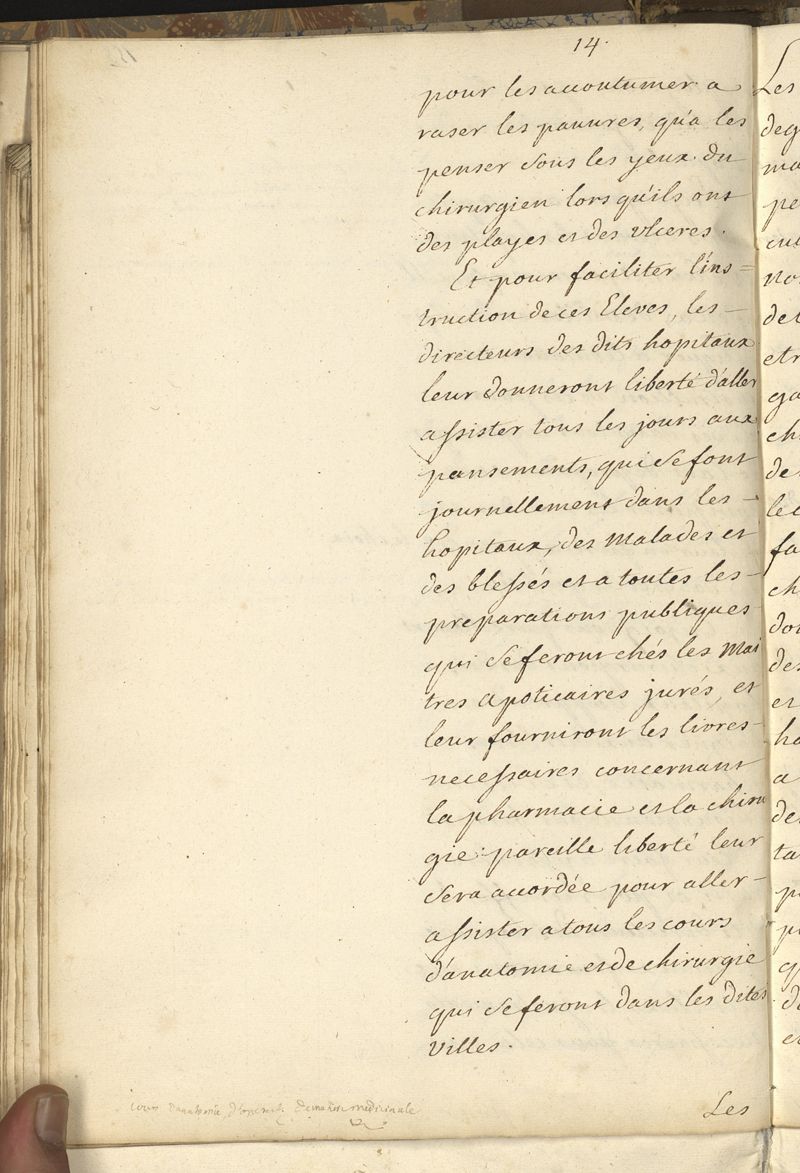 14.
pour les accoutumer a
raser les pauures, qu'a les
penser sous les yeux du
chirurgien lors qu'ils ont
des playes et des vlceres.
Et pour faciliter l'ins=
truction de ces Eleves, les-
directeurs des dits hopitaux
leur donneront liberté d'aller
assister tous les jours aux
pansements, qui se font
journellement dans les-
hopitaux, des Malades et
des blessés et a toutes les-
preparations publiques
qui se feront chés les Mai
tres apoticaires jurés, et
leur fourniront les livres-
necessaires concernant
la pharmacie et la chiru
gie: pareille liberté leur
sera accordée pour aller-
assister a tous les cours
d'anatomie et de chirurgie
qui se feront dans les dites
villes.
Les
cours d'anatomie, d'operat. de matiere medicinale
Les
deg
ma
pe
cu
No
det
etr
ga
ch
de
le c
fa
ch
don
des
et
ha
a
de
ta
pr
pr
q
d
e